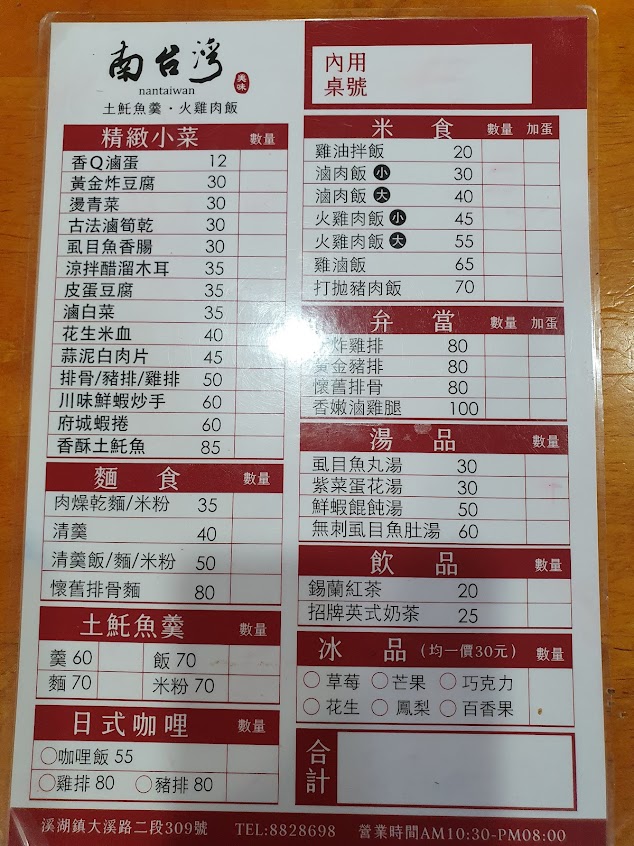 南台灣
美味
nantaiwan
土魠魚羹・火雞肉飯
內用
桌號
精緻小菜 數量
香Q滷蛋 12
黃金炸豆腐 30
燙青菜 30
古法滷筍乾 30
虱目魚香腸 30
涼拌醋溜木耳 35
皮蛋豆腐 35
滷白菜 35
花生米血 40
蒜泥白肉片 45
排骨/豬排/雞排 50
川味鮮蝦炒手 60
府城蝦捲 60
香酥土魠魚 85
麵食 數量
肉燥乾麵/米粉 35
清羹 40
清羹飯/麵/米粉 50
懷舊排骨麵 80
土魠魚羹 數量
羹 60 飯 70
麵 70 米粉 70
日式咖哩 數量
○咖哩飯 55
○雞排 80 ○豬排 80
米食 數量 加蛋
雞油拌飯 20
滷肉飯 小 30
滷肉飯 大 40
火雞肉飯 小 45
火雞肉飯 大 55
雞滷飯 65
打拋豬肉飯 70
弁當 數量 加蛋
炸雞排 80
黃金豬排 80
懷舊排骨 80
香嫩滷雞腿 100
湯品 數量
虱目魚丸湯 30
紫菜蛋花湯 30
鮮蝦餛飩湯 50
無刺虱目魚肚湯 60
飲品 數量
錫蘭紅茶 20
招牌英式奶茶 25
冰品(均一價30元) 數量
○草莓 ○芒果 ○巧克力
○花生 ○鳳梨 ○百香果
合計
溪湖鎮大溪路二段309號 TEL:8828698 營業時間AM10:30-PM08:00